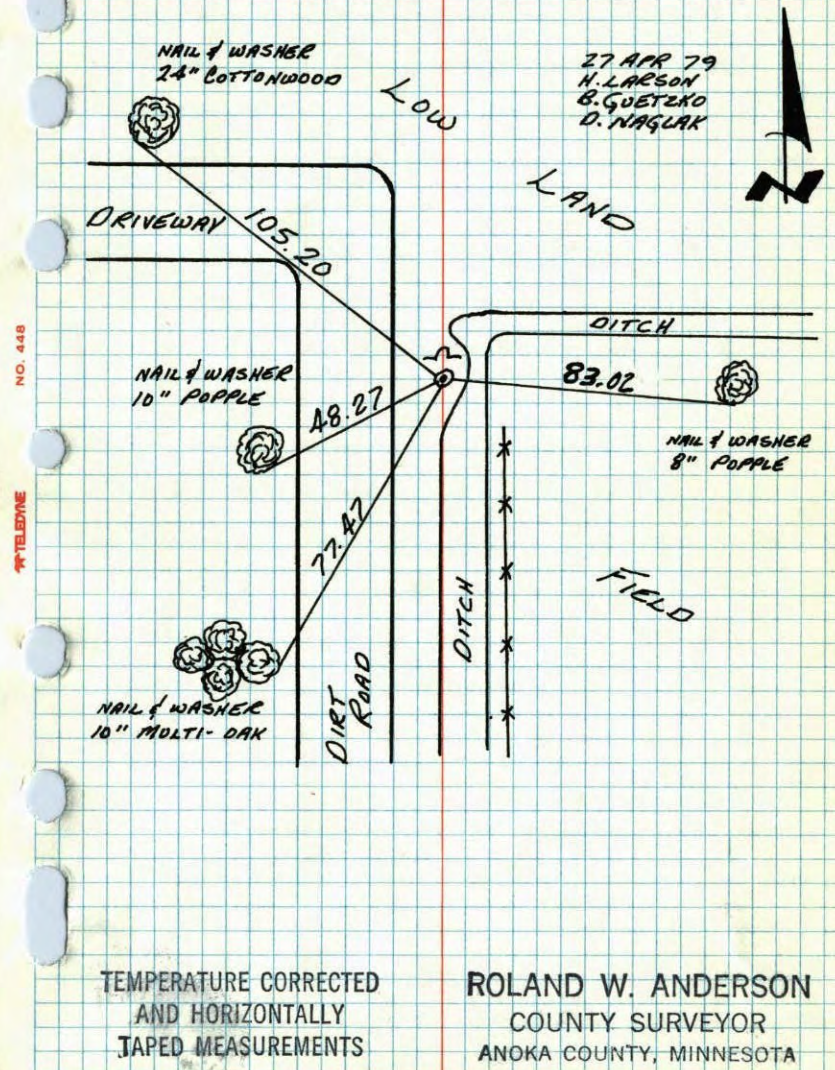 NAIL & WASHER
24" COTTONWOOD
LOW
LAND
27 APR 79
H. LARSON
B. GUETZKO
D. NAGLAK
N
DRIVEWAY
105.20
DITCH
NO. 448
NAIL & WASHER
10" POPPLE
48.27
83.02
NAIL & WASHER
8" POPPLE
TELEDYNE
77.47
FIELD
DITCH
DIRT
ROAD
NAIL & WASHER
10" MULTI-OAK
TEMPERATURE CORRECTED
AND HORIZONTALLY
TAPED MEASUREMENTS
ROLAND W. ANDERSON
COUNTY SURVEYOR
ANOKA COUNTY, MINNESOTA